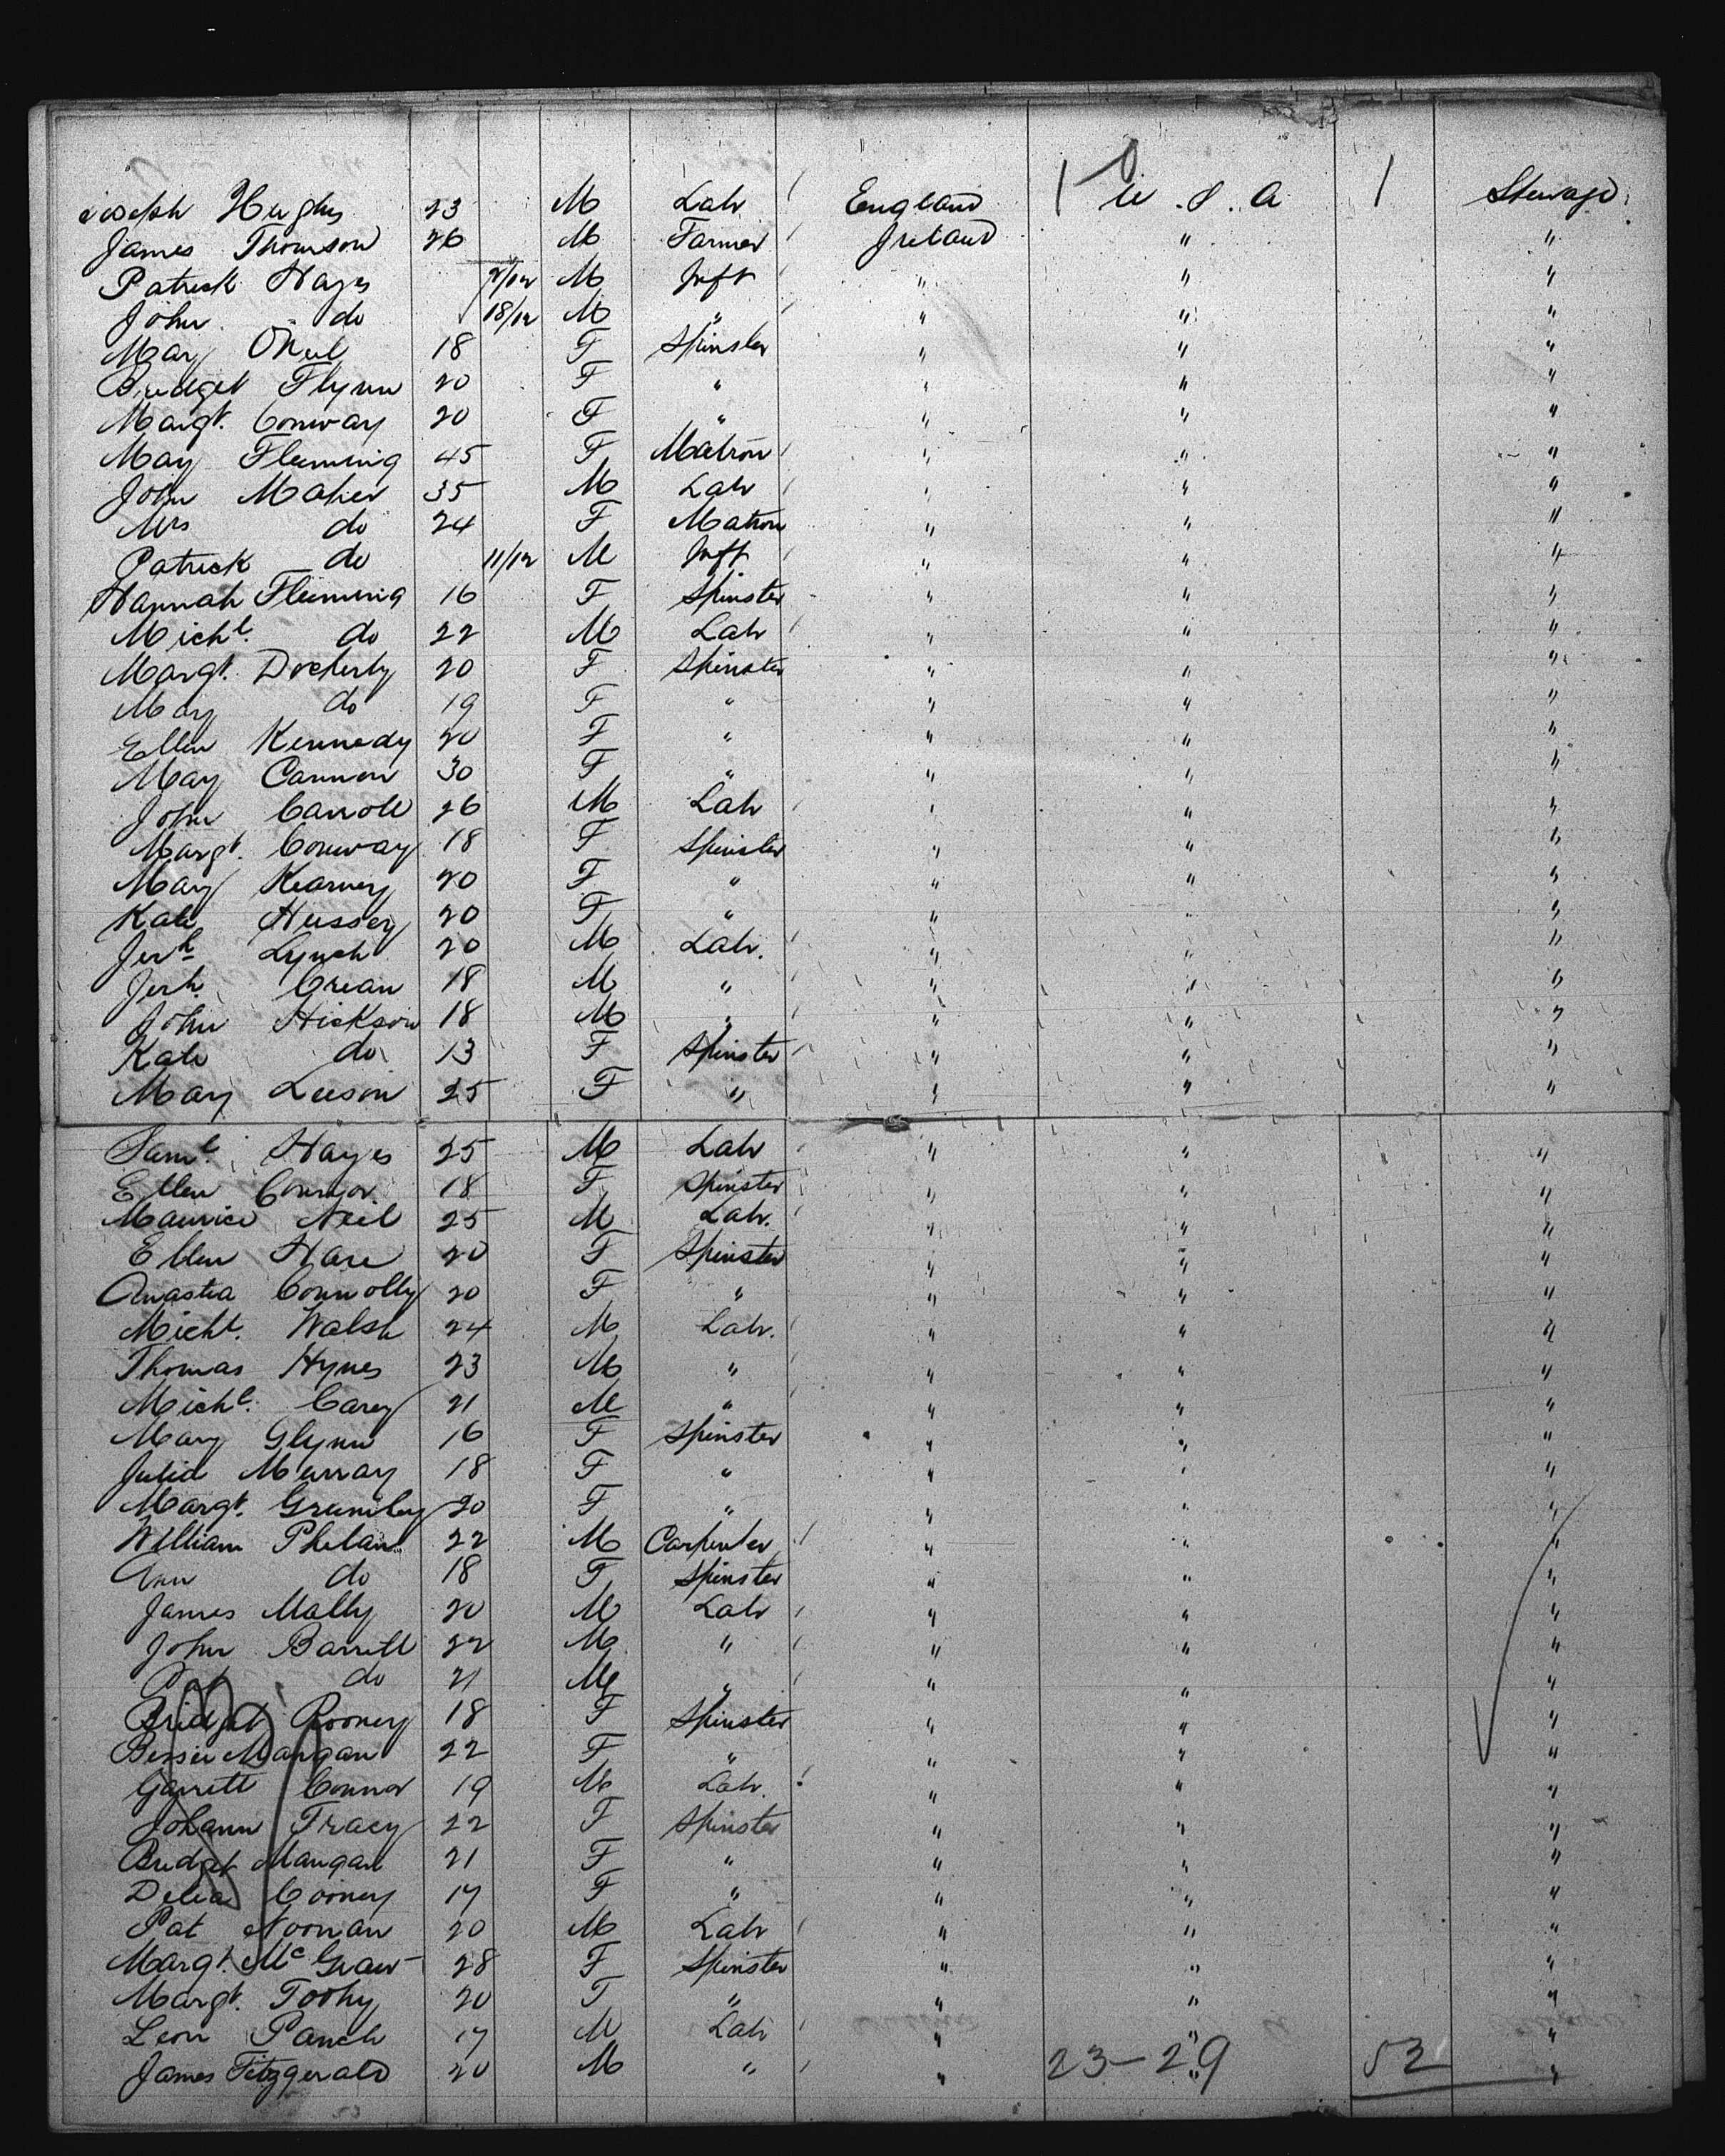 Joseph Hughes 23 M Labr England U.S.A Steerage
James Thomson 26 M Farmer Ireland " "
Patrick Hayes 2/12 M Inft " " "
John do 18/12 M " " " "
Mary ONeil 18 F Spinster " " "
Bridget Flynn 20 F " " " "
Margt. Conway 20 F " " " "
Mary Fleming 45 F Matron " " "
John Maher 35 M Labr " " "
Mrs do 24 F Matron " " "
Patrick do 11/12 M Inft " " "
Hannah Fleming 16 F Spinster " " "
Michl. do 22 M Labr " " "
Margt. Docherty 20 F Spinster " " "
Mary do 19 F " " " "
Ellen Kennedy 20 F " " " "
Mary Cannon 30 F " " " "
John Carroll 26 M Labr " " "
Margt. Conway 18 F Spinster " " "
Mary Kearney 20 F " " " "
Kate Hussey 20 F " " " "
Jerh Lynch 20 M Labr. " " "
Jerh. Crean 18 M " " " "
John Hickson 18 M " " " "
Kate do 13 F Spinster " " "
Mary Leeson 25 F " " " "
Saml. Hayes 25 M Labr " " "
Ellen Connor 18 F Spinster " " "
Maurice Neil 25 M Labr. " " "
Ellen Hare 20 F Spinster " " "
Anastia Connolly 20 F " " " "
Michl. Walsh 24 M Labr. " " "
Thomas Hynes 23 M " " " "
Michl. Carey 21 M " " " "
Mary Glynn 16 F Spinster " " "
Julia Murray 18 F " " " "
Margt. 20 F " " " "
William Phelan 22 M Carpenter " " "
Ann do 18 F Spinster " " "
James Mally 20 M Labr " " "
John Barrett 22 M " " " "
Pat do 21 M " " " "
Bridget Rooney 18 F Spinster " " "
Bessie Mangan 22 F " " " "
Garrett Connor 19 M Labr. " " "
Johann Tracy 22 F Spinster " " "
Bridget Mangan 21 F " " " "
Delia Cooney 17 F " " " "
Pat Noonan 20 M Labr " " "
Margt. McGraw 28 F Spinster " " "
Margt. Toohy 20 F " " " "
Leon 17 M Labr " " "
James Fitzgerald 20 M " " " "
23-29 53